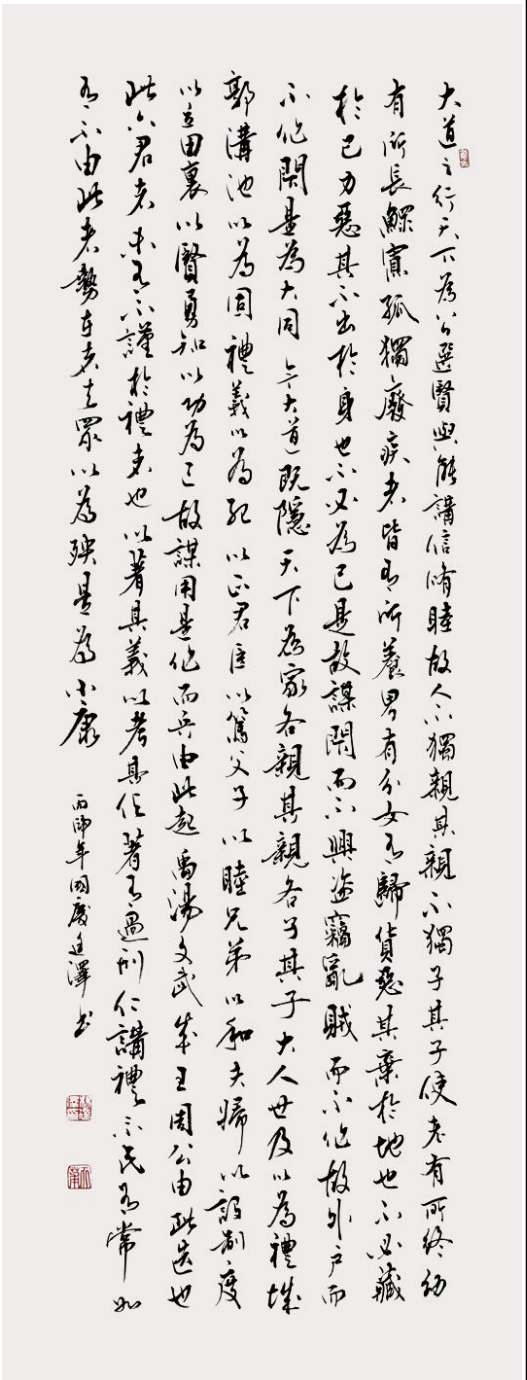 大道之行天下為公選賢與能講信脩睦故人不獨親其親不獨子其子使老有所終幼
有所長鰥寡孤獨廢疾者皆有所養男有分女有歸貨惡其棄於地也不必藏
於己力惡其不出於身也不必為己是故謀閉而不興盗竊亂賊而不作故外户而
不作閉是為大同 今大道既隱天下為家各親其親各子其子大人世及以為禮城
郭溝池以為固禮義以為紀以正君臣以篤父子以睦兄弟以和夫婦以設制度
以立田裏以賢勇知以功為己故謀用是作而兵由此起禹湯文武成王周公由此选也
此六君者未有不謹於禮者也以著其義以考其信著有過刑仁講禮示民有常如
有不由此者勢在者去眾以為殃是為小康
丙 年國慶 澤书